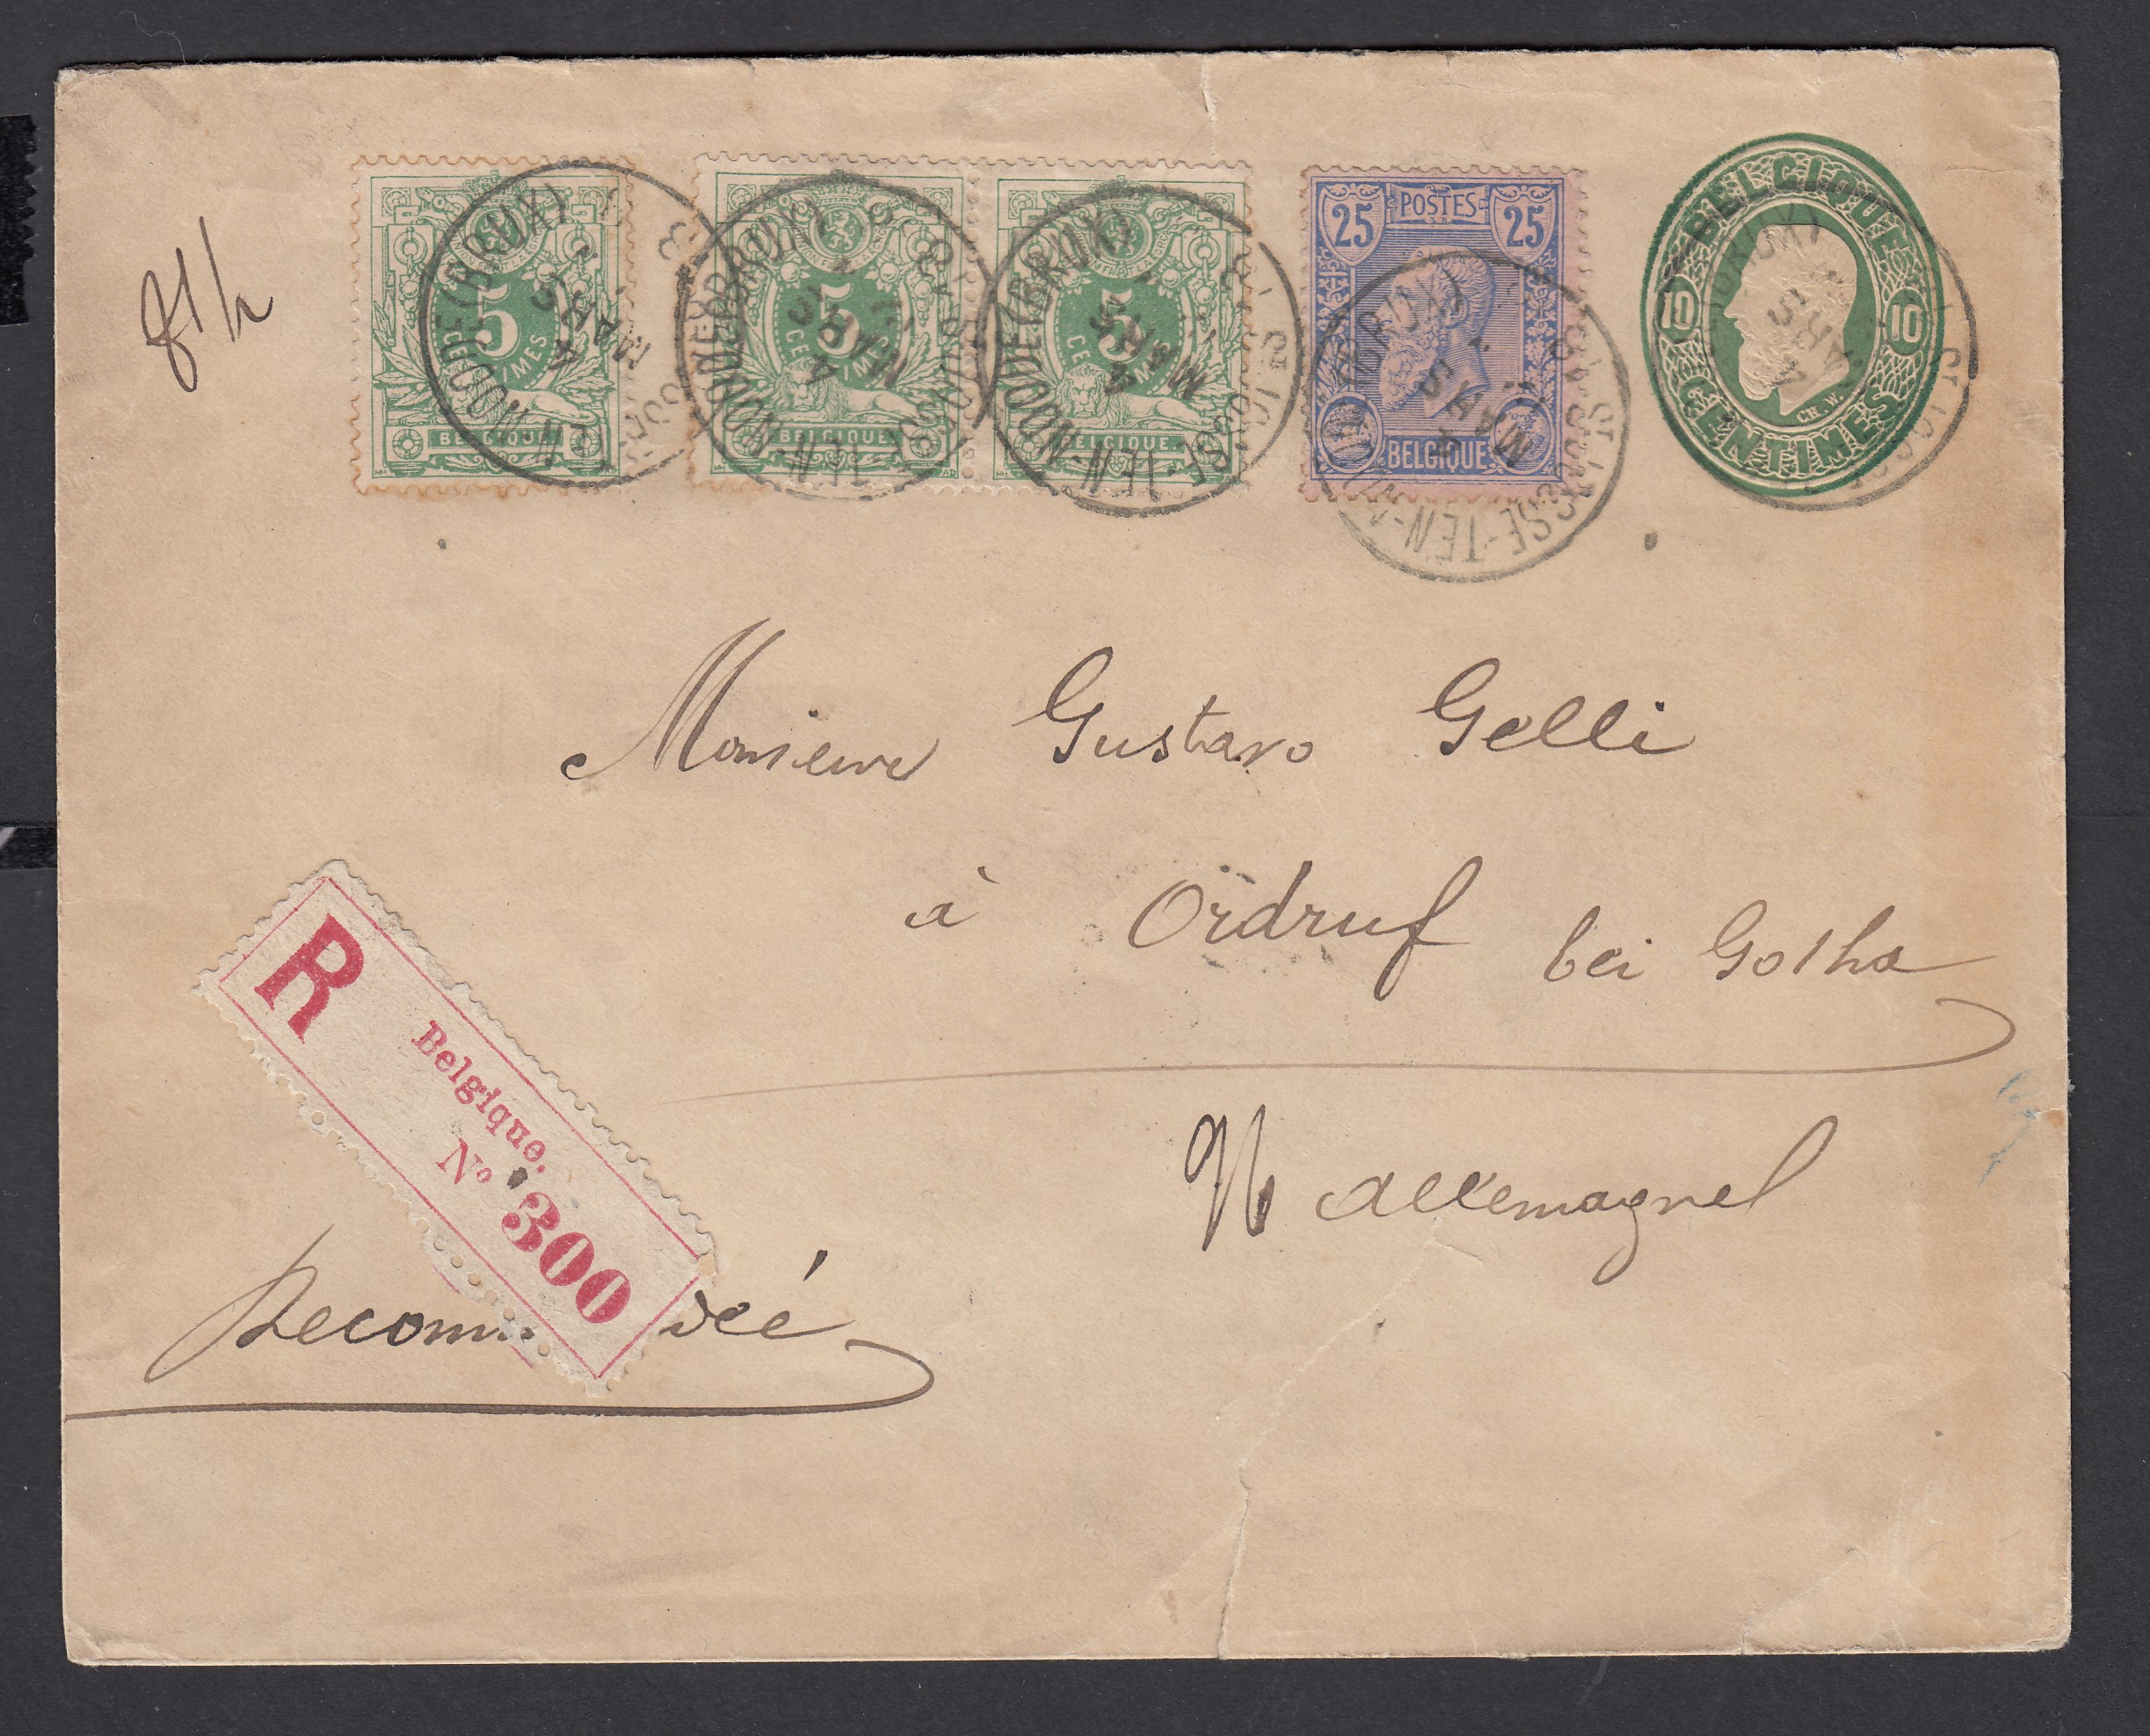 5
CENTIMES
BELGIQUE
5
CENTIMES
BELGIQUE
5
CENTIMES
BELGIQUE
25 POSTES 25
BELGIQUE
BELGIQUE
10 10
CENTIMES
CH.W.
ST JOSSE-TEN-NOODE (BRUX)
4 MARS
Monsieur Gustavo Gelli
à Ordruf bei Gotha
Allemagne
R
Belgique.
No 300
Recom dée